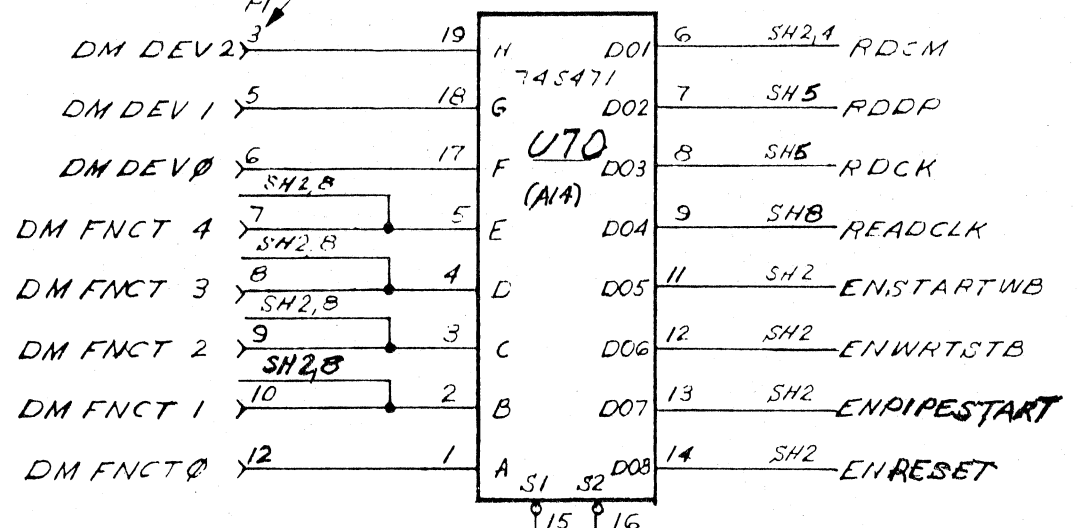 P1
DM DEV2 3 19 H DO1 6 SH2,4 RDCM
74S471
DM DEV 1 5 18 G DO2 7 SH5 RDDP
U70
DM DEVØ 6 17 F DO3 8 SH5 RDCK
SH2,8
(A14)
DM FNCT 4 7 5 E DO4 9 SH8 READCLK
SH2,8
DM FNCT 3 8 4 D DO5 11 SH2 ENSTARTWB
SH2,8
DM FNCT 2 9 3 C DO6 12 SH2 ENWRTSTB
SH2,8
DM FNCT 1 10 2 B DO7 13 SH2 ENPIPESTART
DM FNCTØ 12 1 A DO8 14 SH2 ENRESET
S1 S2
15 16